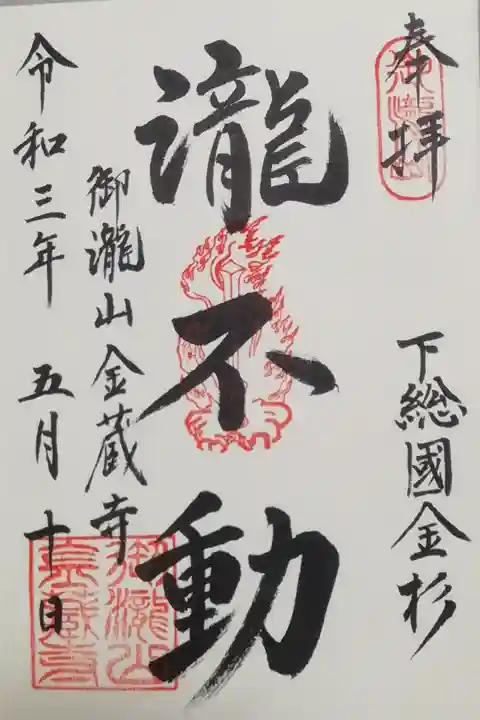 奉拝
下総國金杉
瀧不動
御瀧山金蔵寺
令和三年 五月十日
御瀧山
金蔵寺